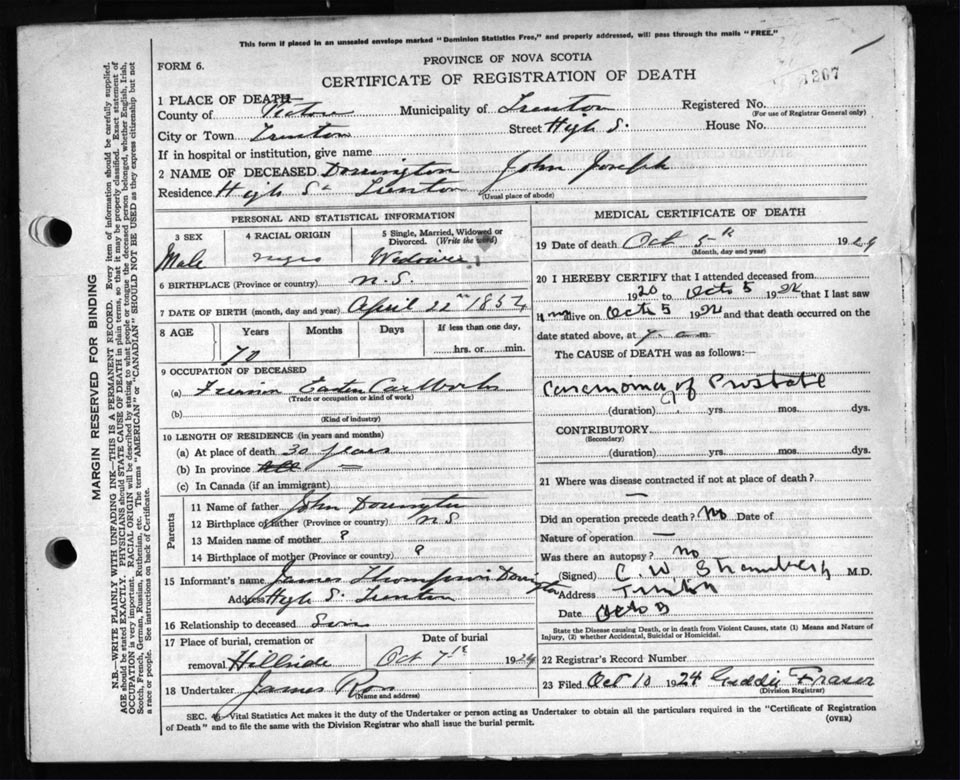 This form if placed in an unsealed envelope marked "Dominion Statistics Free," and properly addressed, will pass through the mails "FREE."
FORM 6.
PROVINCE OF NOVA SCOTIA
CERTIFICATE OF REGISTRATION OF DEATH
1 PLACE OF DEATH
County of Pictou Municipality of Trenton Registered No.
(For use of Registrar General only)
City or Town Trenton Street High St House No.
If in hospital or institution, give name
2 NAME OF DECEASED Dorrington John Joseph
Residence High St Trenton
(Usual place of abode)
PERSONAL AND STATISTICAL INFORMATION
3 SEX 4 RACIAL ORIGIN 5 Single, Married, Widowed or Divorced. (Write the word)
Male Negro Widower
6 BIRTHPLACE (Province or country) N.S.
7 DATE OF BIRTH (month, day and year) April 22nd 1854
8 AGE Years Months Days If less than one day,
70 hrs. or min.
9 OCCUPATION OF DECEASED
(a) Eastern Car Works
(Trade or occupation or kind of work)
(b)
(Kind of industry)
10 LENGTH OF RESIDENCE (in years and months)
(a) At place of death 30 years
(b) In province All
(c) In Canada (if an immigrant)
Parents
11 Name of father John Dorrington
12 Birthplace of father (Province or country) N S
13 Maiden name of mother ?
14 Birthplace of mother (Province or country) ?
15 Informant's name James Thompson Dorrington
Address High St Trenton
16 Relationship to deceased Son
17 Place of burial, cremation or removal Hillside
Date of burial Oct 7th 1924
18 Undertaker James Ross
(Name and address)
MEDICAL CERTIFICATE OF DEATH
19 Date of death Oct 5th 1924
(Month, day and year)
20 I HEREBY CERTIFY that I attended deceased from
1920 to Oct 5 1924 that I last saw
him alive on Oct 5 1924 and that death occurred on the
date stated above, at 7 a m.
The CAUSE of DEATH was as follows:—
Carcinoma of Prostate
(duration) yrs. mos. dys.
CONTRIBUTORY
(Secondary)
(duration) yrs. mos. dys.
21 Where was disease contracted if not at place of death?
—
Did an operation precede death? No Date of
Nature of operation —
Was there an autopsy? No
(Signed) C. W M.D.
Address Trenton
Date Oct
State the Disease causing Death, or in death from Violent Causes, state (1) Means and Nature of Injury, (2) whether Accidental, Suicidal or Homicidal.
22 Registrar's Record Number
23 Filed Oct 10 1924 Fraser
(Division Registrar)
SEC. Vital Statistics Act makes it the duty of the Undertaker or person acting as Undertaker to obtain all the particulars required in the "Certificate of Registration
of Death" and to file the same with the Division Registrar who shall issue the burial permit. (OVER)
MARGIN RESERVED FOR BINDING
N.B.—WRITE PLAINLY WITH UNFADING INK—THIS IS A PERMANENT RECORD. Every item of information should be carefully supplied.
AGE should be stated EXACTLY. PHYSICIANS should STATE CAUSE OF DEATH in plain terms, so that it may be properly classified. Exact statement of
OCCUPATION is very important. RACIAL ORIGIN will be described by stating to what people or tongue the deceased person belonged, whether English, Irish,
Scotch, French, German, Russian, Ruthenian, etc. The terms "AMERICAN" or "CANADIAN" SHOULD NOT BE USED as they express citizenship but not
a race or people. See instructions on back of Certificate.